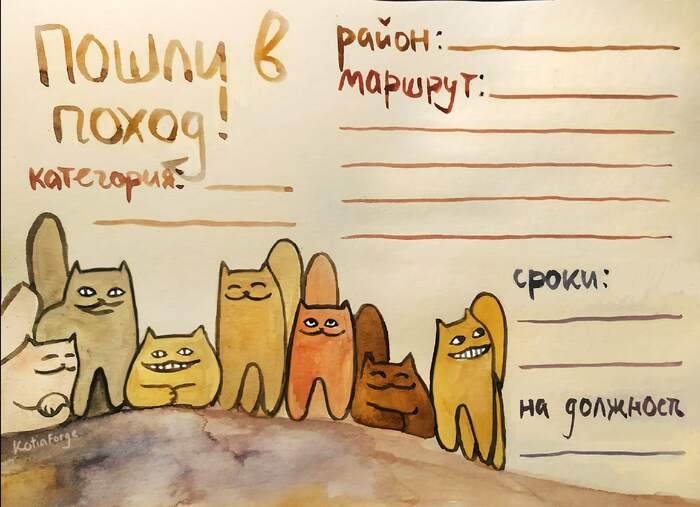 Пошли в
поход!
категория:
район:
маршрут:
сроки:
на должность
KatiaForge